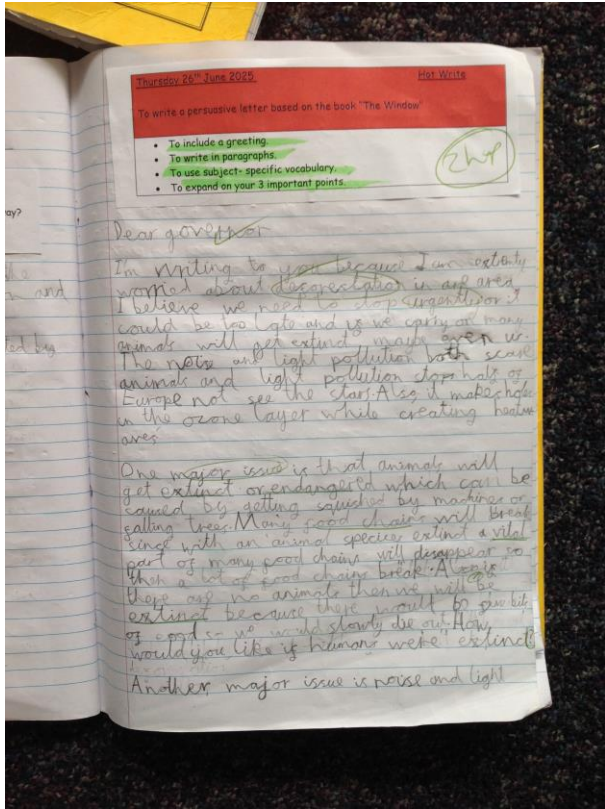 Thursday 26th June 2025 Hot Write
To write a persuasive letter based on the book "The Window"
To include a greeting.
To write in paragraphs.
To use subject- specific vocabulary.
To expand on your 3 important points.
ay?
and
ted by
Dear governor
I'm writing to you because I am
worried about in area
I believe we need to stop urgently or it
could be too late and if we carry on many
animals will get extinct maybe even us.
The noise and light pollution both scare
animals and light pollution stops half of
Europe not see the stars. Also it makes holes
in the ozone layer while creating
One major issue is that animals will
get extinct or endangered which can be
caused by getting squished by machines or
falling trees. Many food chains will break
since with an animal species extinct a vital
part of many food chains will disappear so
then a lot of food chains break. Also if
there are no animals then we will be
extinct because there would be
of we would slowly die out. How
would you like if humans were extinct
Another major issue is noise and light